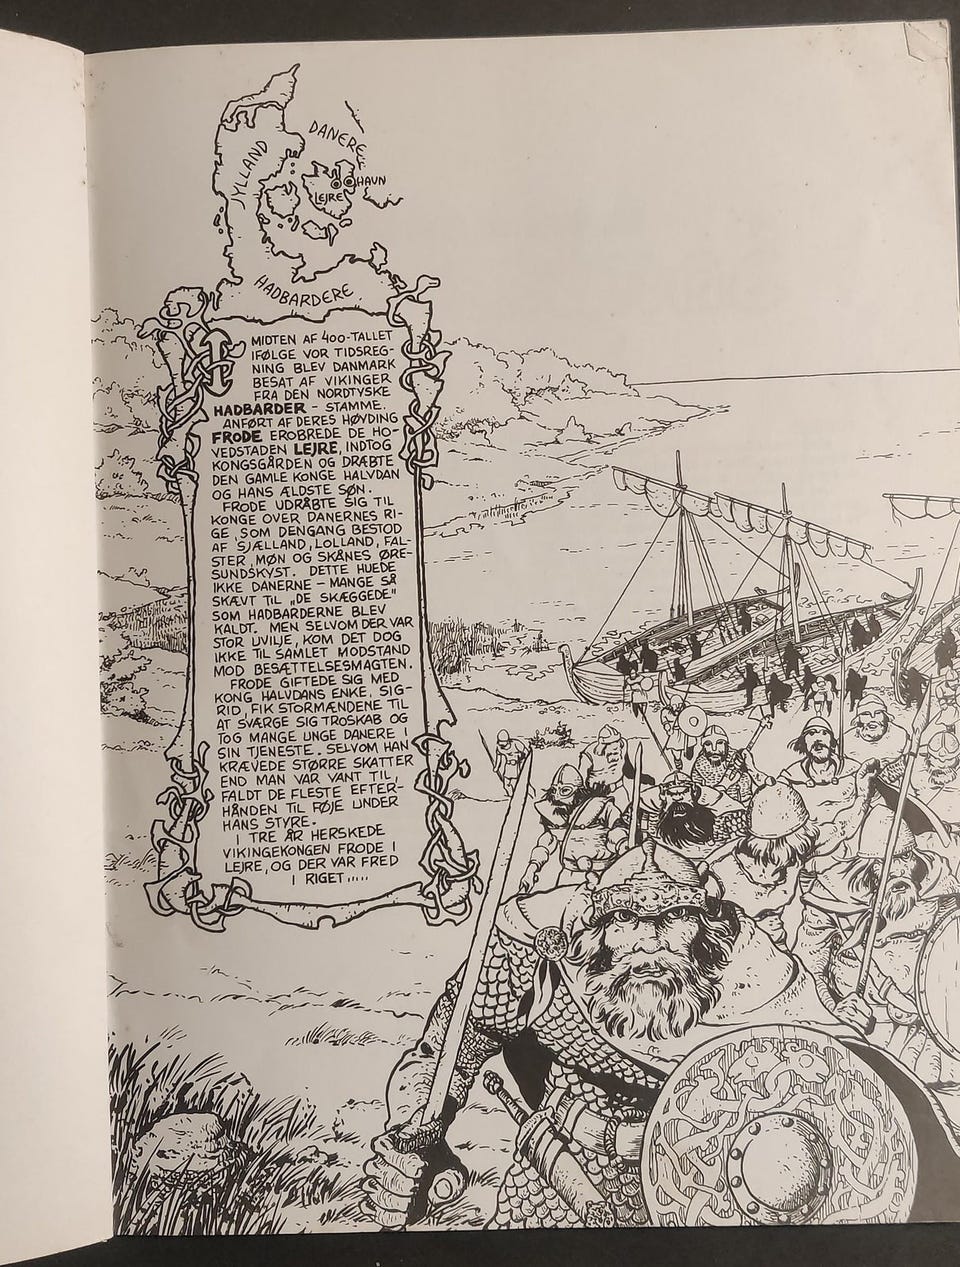 DANERE
JYLLAND
HAVN
LEJRE
HADBARDERE
I MIDTEN AF 400-TALLET
IFØLGE VOR TIDSREG-
NING BLEV DANMARK
BESAT AF VIKINGER
FRA DEN NORDTYSKE
HADBARDER - STAMME.
ANFØRT AF DERES HØVDING
FRODE EROBREDE DE HO-
VEDSTADEN LEJRE, INDTOG
KONGSGÅRDEN OG DRÆBTE
DEN GAMLE KONGE HALVDAN
OG HANS ÆLDSTE SØN.
FRODE UDRÅBTE SIG TIL
KONGE OVER DANERNES RI-
GE, SOM DENGANG BESTOD
AF SJÆLLAND, LOLLAND, FAL-
STER, MØN OG SKÅNES ØRE-
SUNDSKYST. DETTE HUEDE
IKKE DANERNE - MANGE SÅ
SKÆVT TIL „DE SKÆGGEDE"
SOM HADBARDERNE BLEV
KALDT. MEN SELVOM DER VAR
STOR UVILJE, KOM DET DOG
IKKE TIL SAMLET MODSTAND
MOD BESÆTTELSESMAGTEN.
FRODE GIFTEDE SIG MED
KONG HALVDANS ENKE, SIG-
RID, FIK STORMÆNDENE TIL
AT SVÆRGE SIG TROSKAB OG
TOG MANGE UNGE DANERE I
SIN TJENESTE. SELVOM HAN
KRÆVEDE STØRRE SKATTER
END MAN VAR VANT TIL,
FALDT DE FLESTE EFTER-
HÅNDEN TIL FØJE UNDER
HANS STYRE.
TRE ÅR HERSKEDE
VIKINGEKONGEN FRODE I
LEJRE, OG DER VAR FRED
I RIGET.....